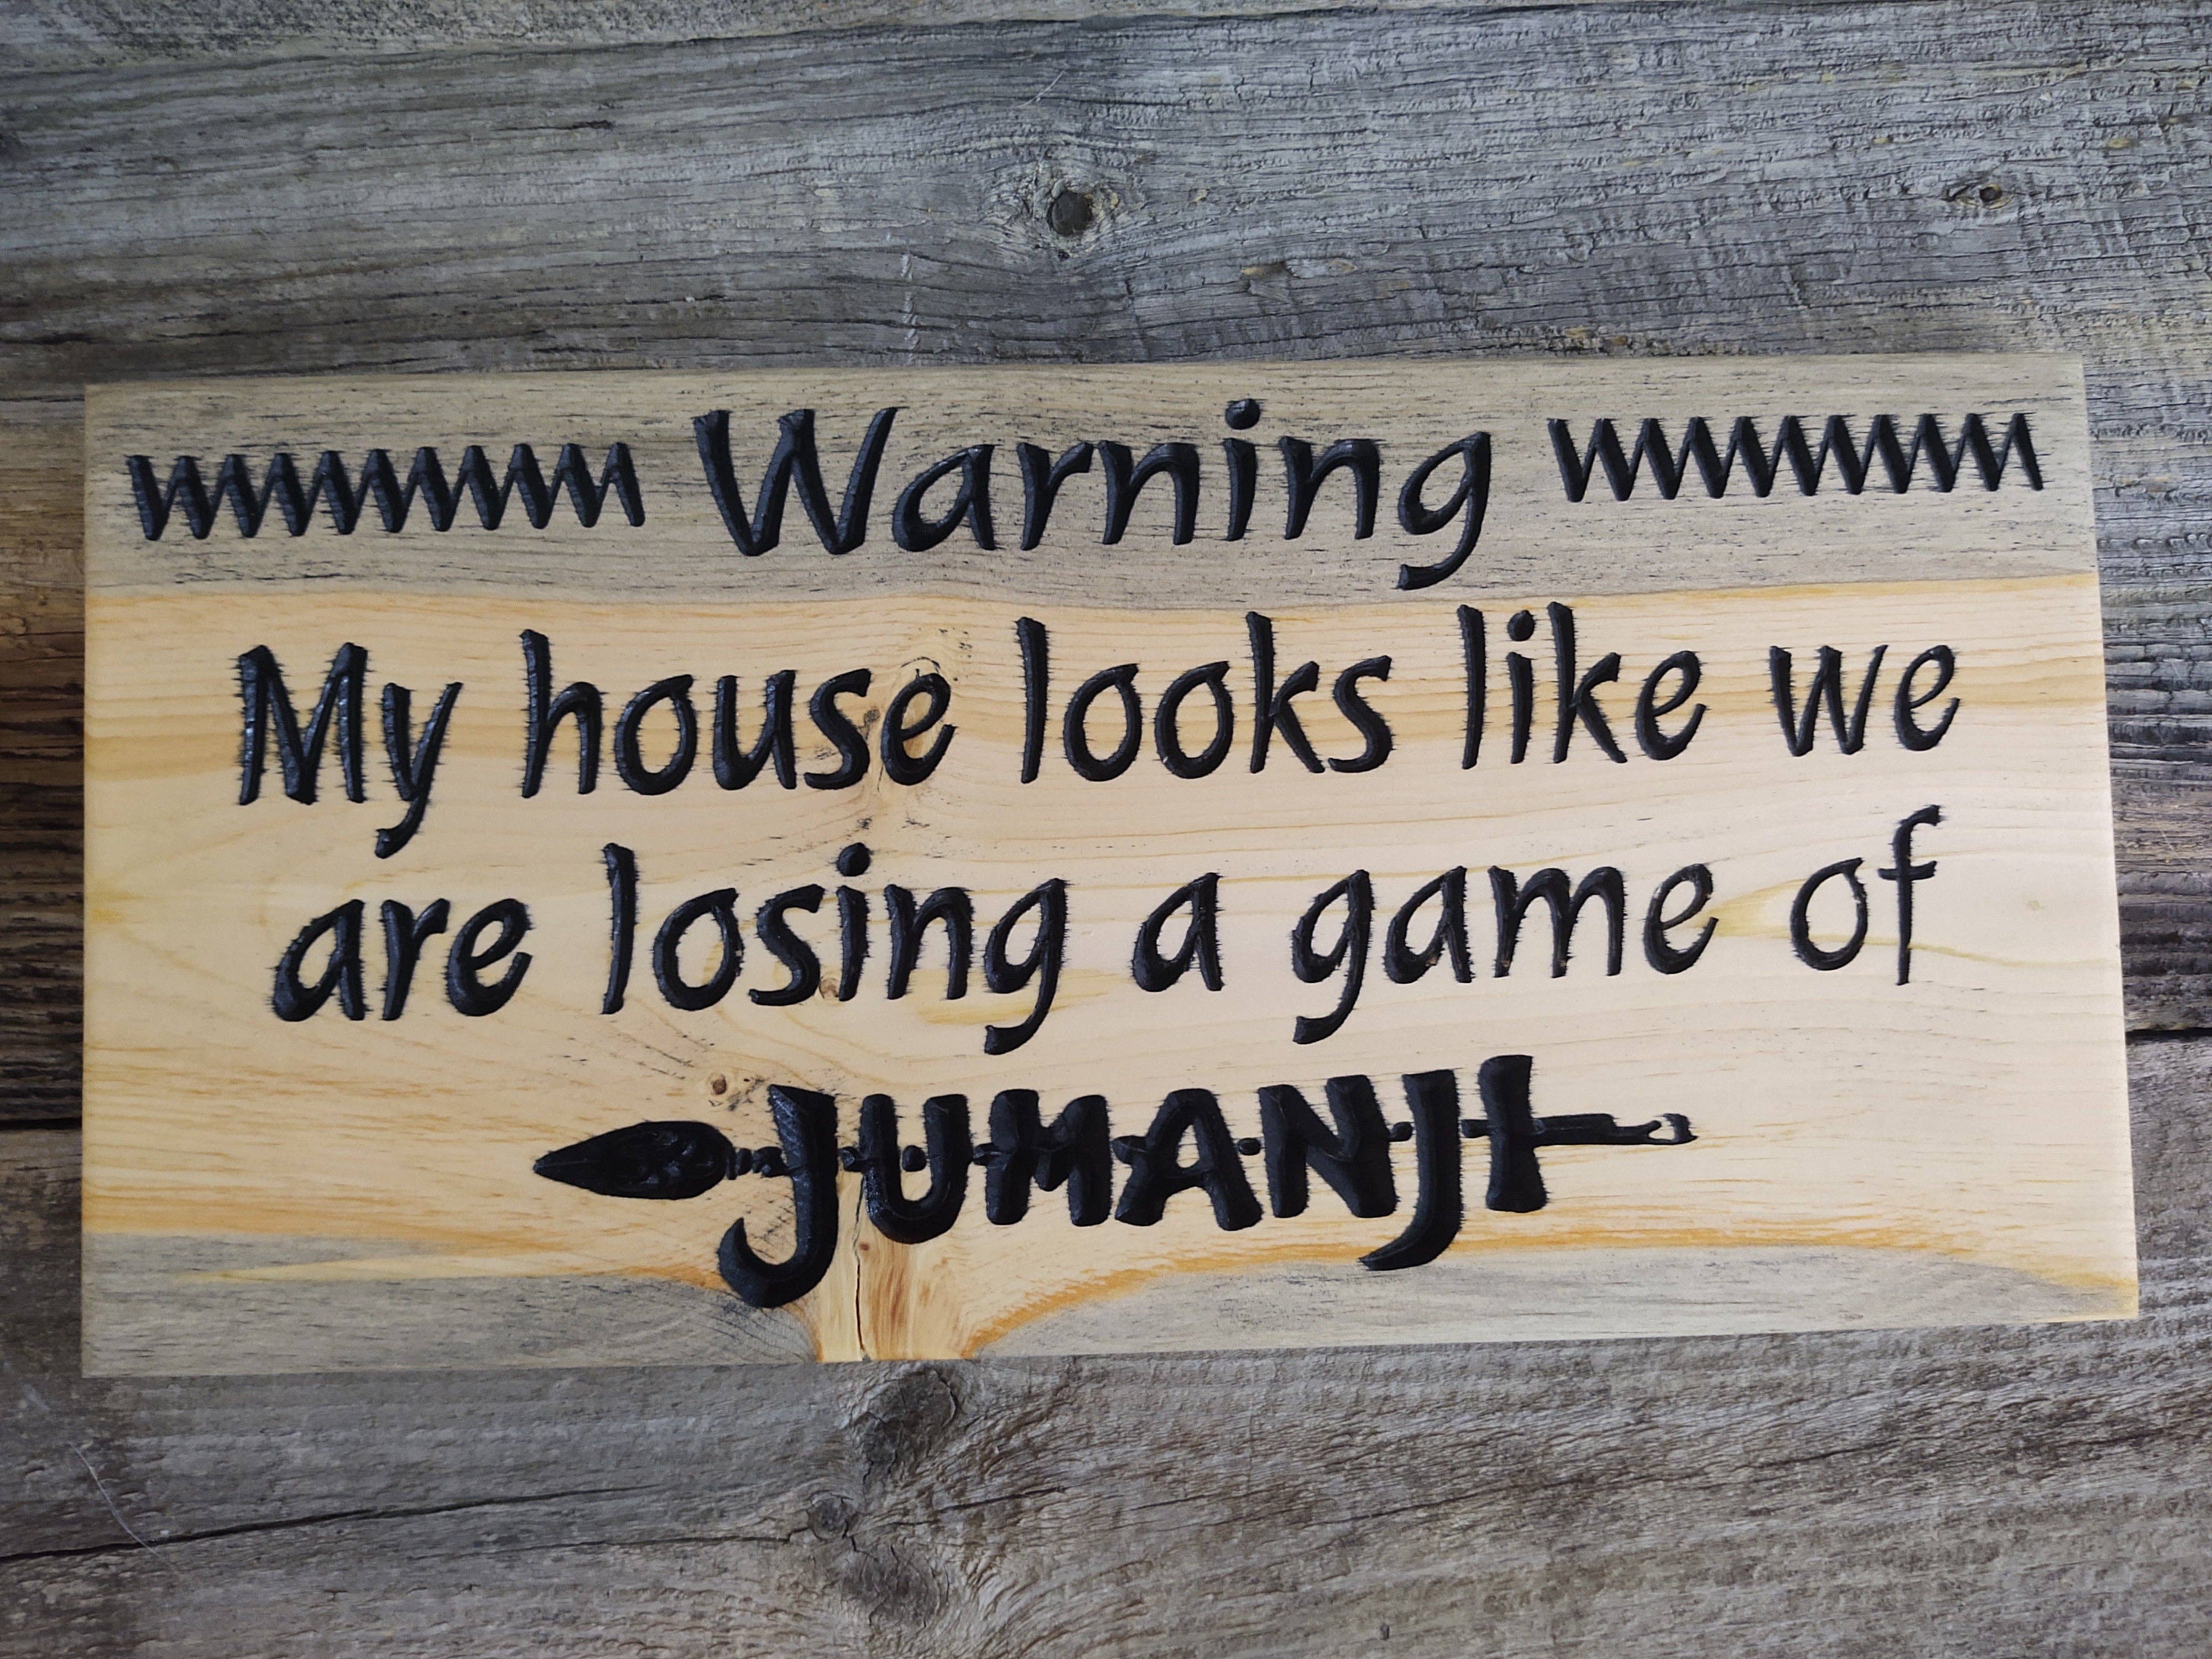 Warning
My house looks like we
are losing a game of
JUMANJI